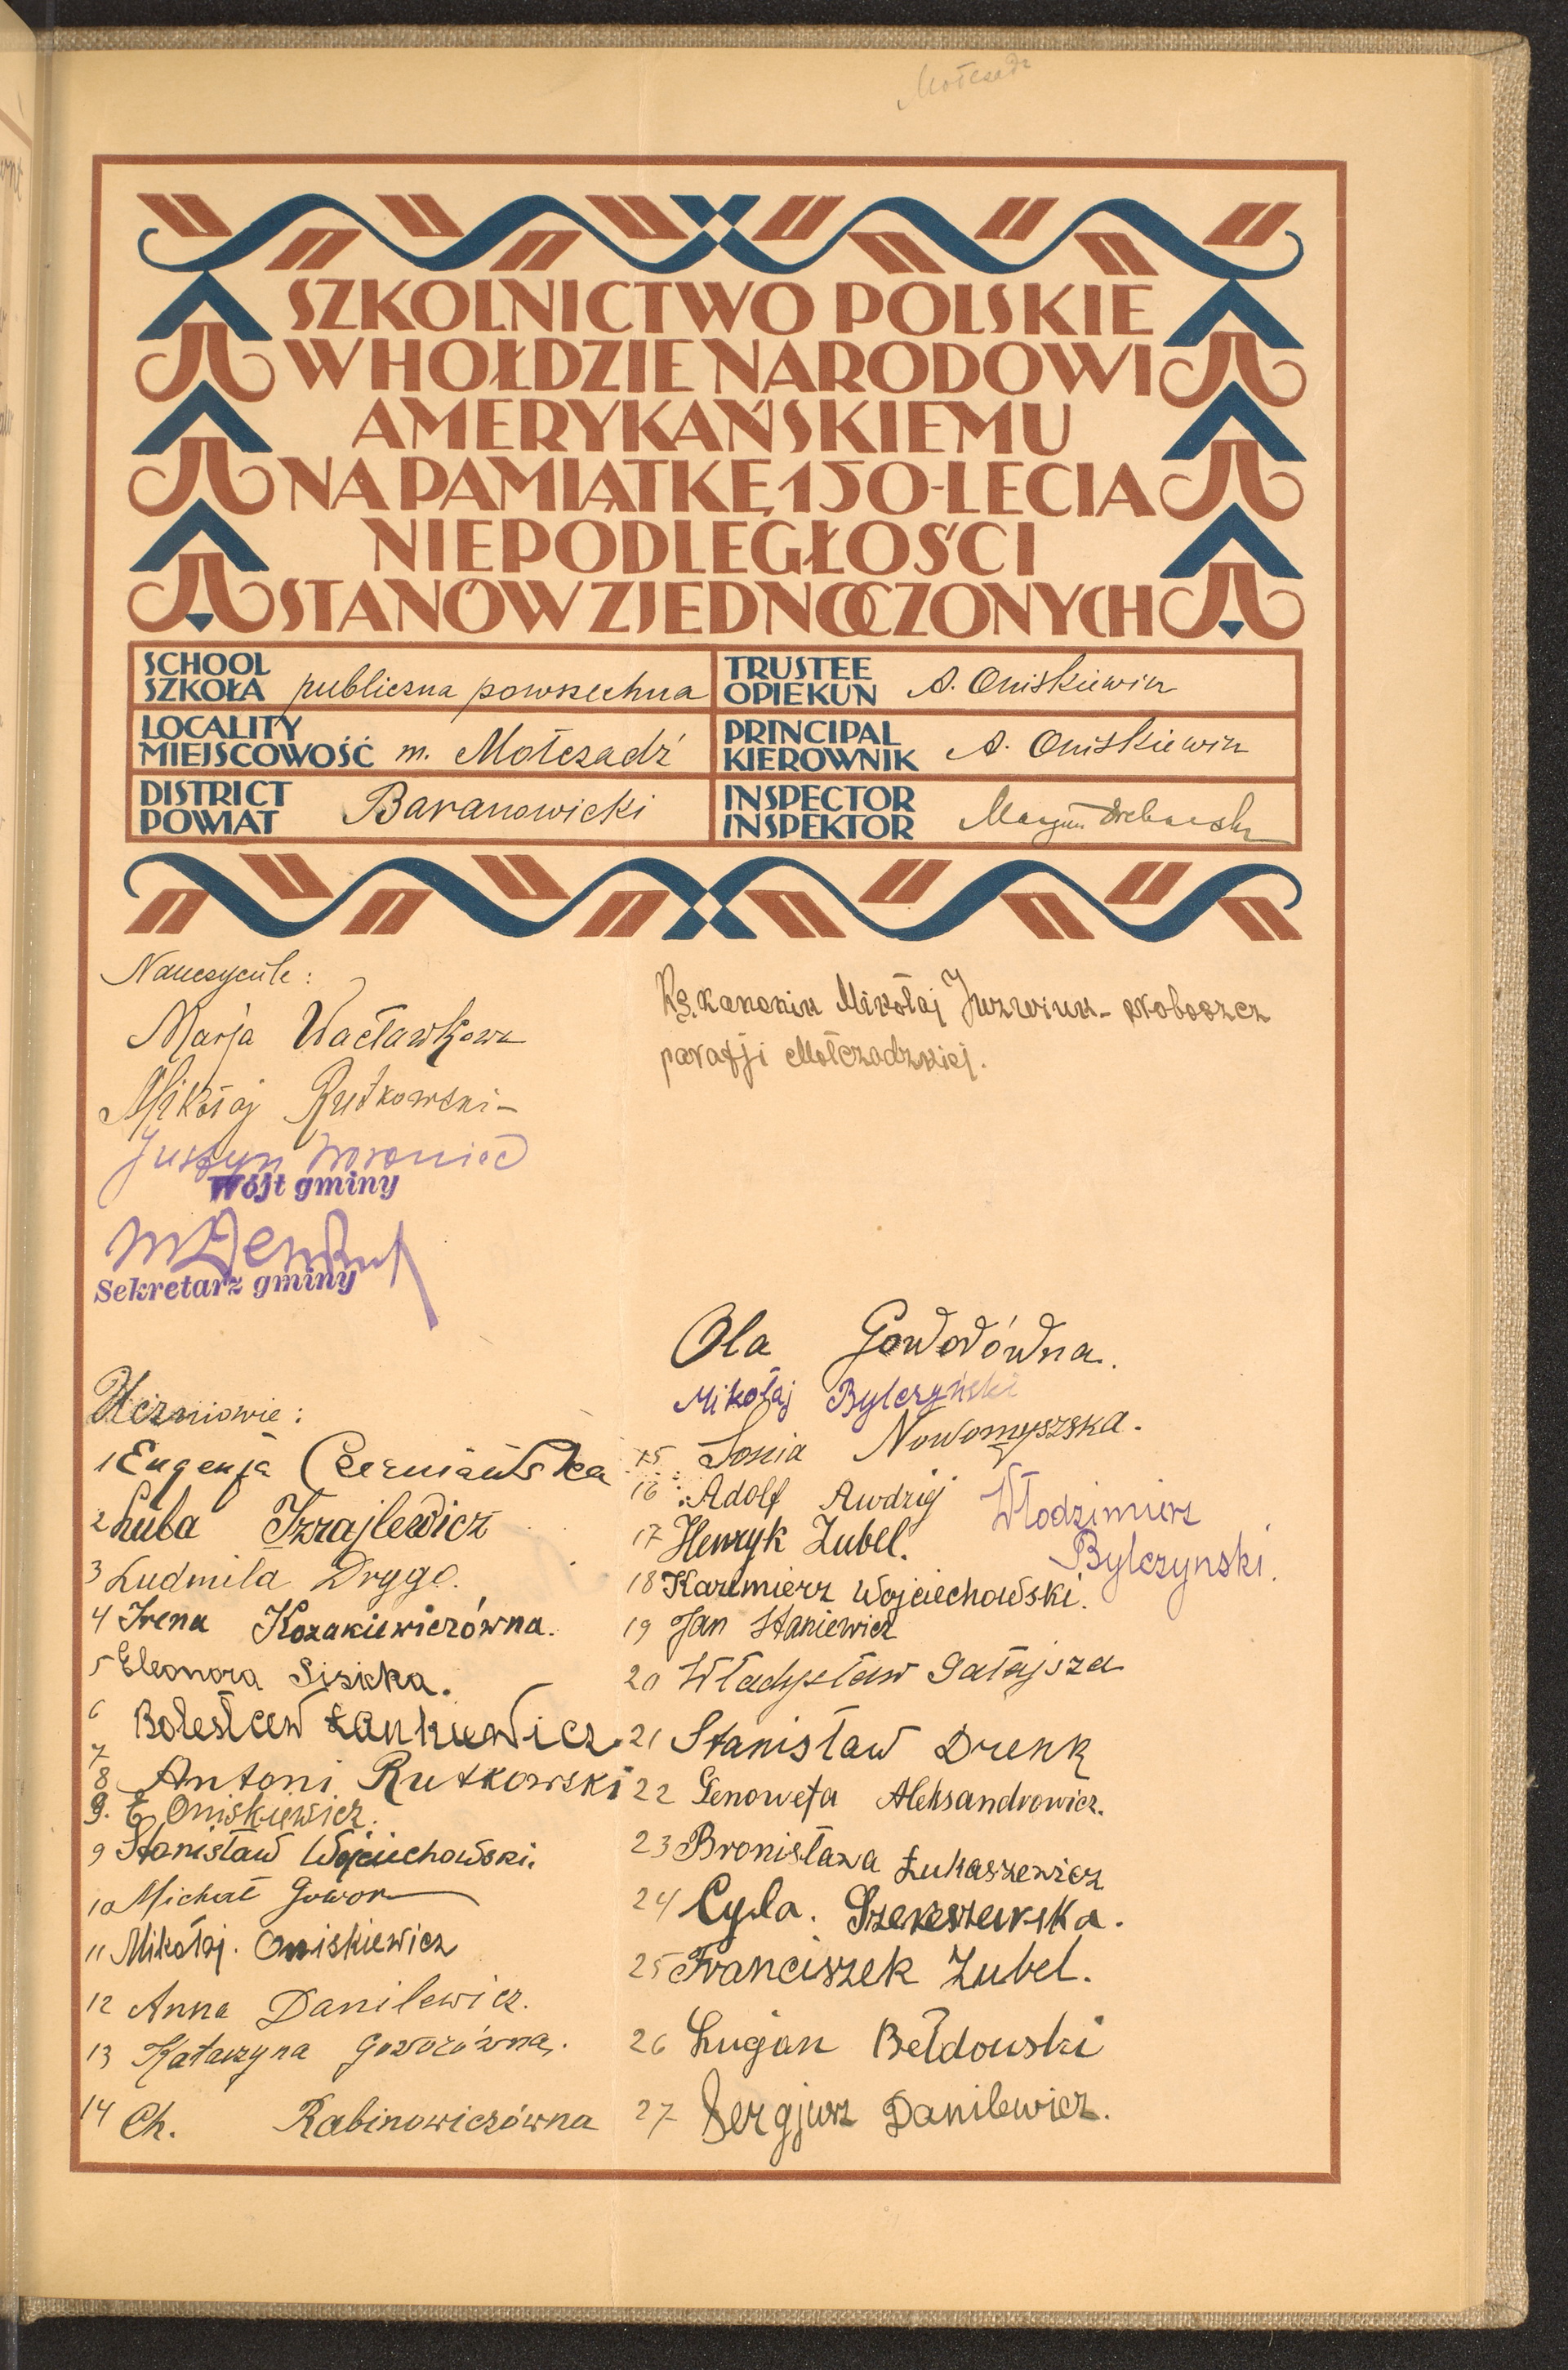 Mołczadź
SZKOLNICTWO POLSKIE
W HOŁDZIE NARODOWI
AMERYKAŃSKIEMU
NA PAMIĄTKĘ 150-LECIA
NIEPODLEGŁOŚCI
STANÓW ZJEDNOCZONYCH
SCHOOL
SZKOŁA publiczna powszechna
TRUSTEE
OPIEKUN A. Oniskiewicz
LOCALITY
MIEJSCOWOŚĆ m. Mołczadź
PRINCIPAL
KIEROWNIK A. Oniskiewicz
DISTRICT
POWIAT Baranowicki
INSPECTOR
INSPEKTOR
Nauczyciele:
Marja Wacławkowa
Mikołaj Rutkowski-
Justyn Woroniec
Wójt gminy
Sekretarz gminy
Ks. kanonik Mikołaj Juzwiuk - proboszcz
parafji Mołczadzkiej.
Uczniowie:
1 Eugenja Czerniańska
2 Luba Izrajlewicz
3 Ludmila Drygo.
4 Irena Kozakiewiczówna.
5 Eleonora Sisicka.
6 Bolesław Łankiewicz
7
8 Antoni Rutkowski
9. E Oniskiewicz.
9 Stanisław Wojciechowski.
10 Michał Gowor
11 Mikołaj. Oniskiewicz
12 Anna Danilewicz.
13 Katarzyna Goworówna.
14 Ch. Rabinowiczówna
Ola Goworówna.
Mikołaj Bylczyński
15 Sonia Nowomyszska.
16 Adolf Awdziej
Włodzimierz
Bylczynski.
17 Henryk Zubel.
18 Kazimierz Wojciechowski.
19 Jan Staniewicz
20 Władysław Gałajsza
21 Stanisław Drenk
22 Genowefa Aleksandrowicz.
23 Bronisława Łukaszewicz
24 Cyla. Szereszewska.
25 Franciszek Zubel.
26 Lugjan Bełdowski
27 Sergjusz Danilewicz.